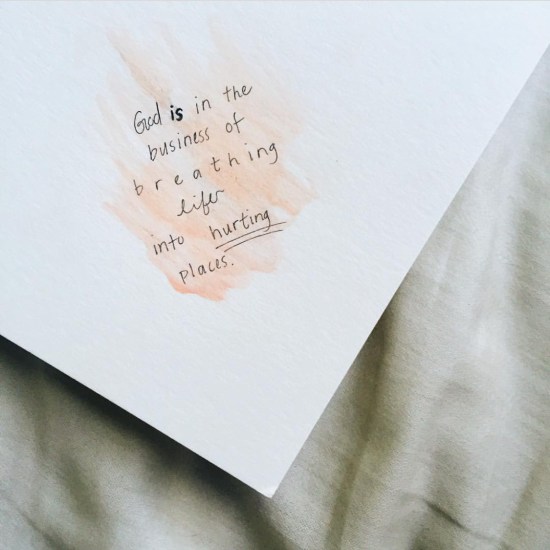 God is in the
business of
breathing
life
into hurting
places.